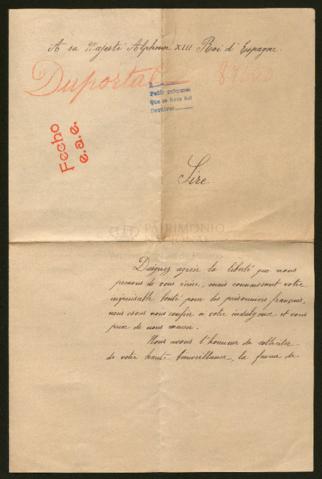 A sa Majesté Alphonse XIII Roi d'Espagne.
Duportal
Pedir
que se hace
Fecho
e.a.e.
Sire
PATRIMONIO
Daignez agréer la liberté que nous
prenons de vous écrire, mais connaissant votre
inépuisable bonté pour les prisonniers français,
nous osons nous confier à votre indulgence et vous
prier de nous excuser.
Nous avons l'honneur de solliciter
de votre haute bienveillance, la faveur de